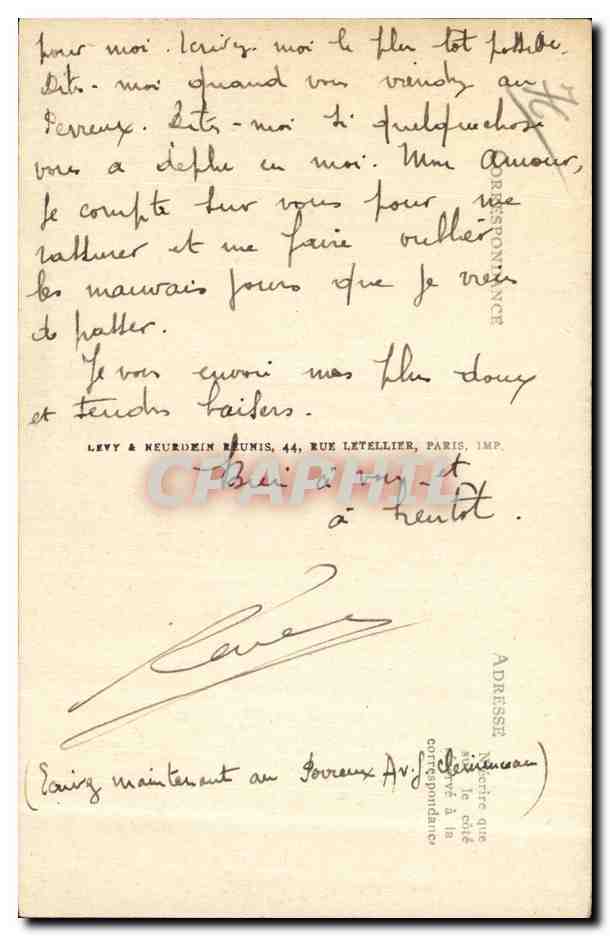 pour moi. Ecrivez-moi le plus tot possible.
Dites-moi quand vous viendrez au
Perreux. Dites-moi si quelquechose
vous a déplu en moi. Mon amour,
Je compte sur vous pour me
rassurer et me faire oublier
les mauvais jours que je viens
de passer.
Je vous envoi mes plus doux
et tendres baisers.
LEVY & NEURDEIN REUNIS, 44, RUE LETELLIER, PARIS, IMP.
CPAPHIL
Bien à vous et
à bientôt.
(Ecrivez maintenant au Perreux Av. G Clemenceau)
CORRESPONDANCE
ADRESSE
N'écrire que
sur le côté
réservé à la
correspondance